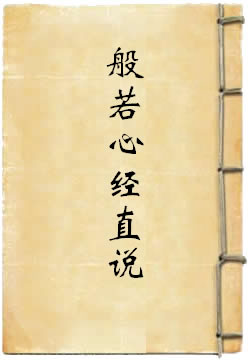 般若心经直说